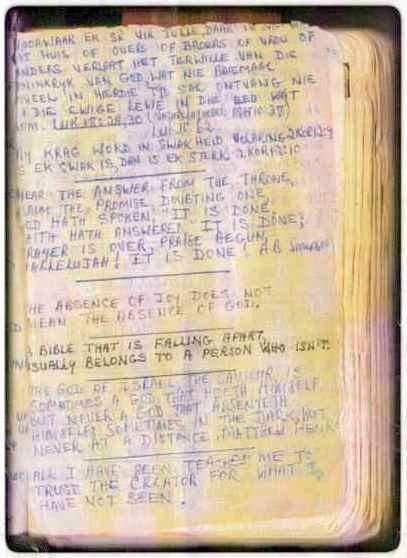 VOORWAAR EK SÊ VIR JULLE, DAAR IS
HUIS OF OUERS OF BROERS OF VROU OF
KINDERS VERLAAT HET TERWILLE VAN DIE
KONINKRYK VAN GOD, WAT NIE
IN HIERDIE TYD SAL ONTVANG NIE
DIE EWIGE LEWE IN DIE EEU WAT
KOM. LUK 18:28,30 (MATT 10:38)
LUK 62
MY KRAG WORD IN SWAKHEID VOLBRING 2 KOR 12:9
AS EK SWAK IS, DAN IS EK STERK 2 KOR 12:10
HEAR THE ANSWER FROM THE THRONE,
CLAIM THE PROMISE DOUBTING ONE
GOD HATH SPOKEN. "IT IS DONE
FAITH HATH ANSWERED "IT IS DONE;
PRAYER IS OVER, PRAISE BEGUN,
HALLELUJAH! IT IS DONE! A B SIMPSON
THE ABSENCE OF JOY DOES NOT
MEAN THE ABSENCE OF GOD.
A BIBLE THAT IS FALLING APART,
USUALLY BELONGS TO A PERSON WHO ISN'T.
THE GOD OF ISRAEL, THE SAVIOUR, IS
SOMETIMES A GOD THAT HIDETH HIMSELF
BUT NEVER A GOD THAT ABSENTETH
HIMSELF; SOMETIMES IN THE DARK, BUT
NEVER AT A DISTANCE. MATTHEW HENRY
ALL I HAVE SEEN TEACHES ME TO
TRUST THE CREATOR FOR WHAT I
HAVE NOT SEEN.